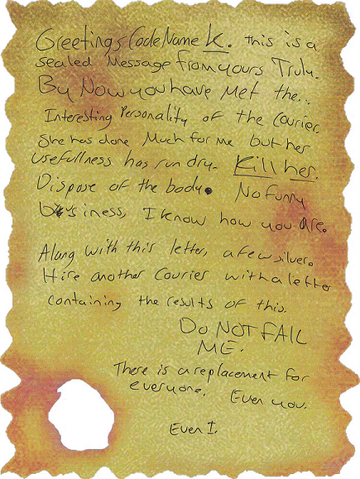 Greetings CodeName K. this is a
sealed Message from yours Truly.
By Now you have Met the...
Interesting Personality of the Courier.
She has done Much for me but her
usefullness has run dry. Kill her.
Dispose of the body. No funny
business, I know how you are.
Along with this letter, a few silver.
Hire another Courier with a letter
containing the results of this.
DO NOT FAIL
ME.
There is a replacement for
everyone. Even you.
Even I.